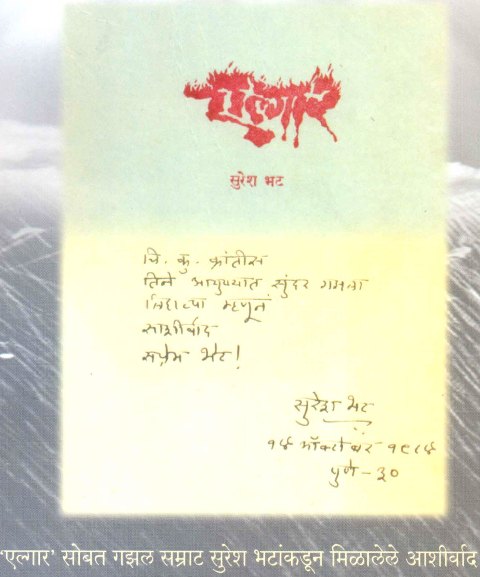 एल्गार
सुरेश भट
चि. कु. क्रांतीस
तिने आयुष्यात सुंदर गझला
लिहाव्या म्हणून
साशीर्वाद
सप्रेम भेट!
सुरेश भट
१४ ऑक्टोबर १९८४
पुणे – ३०
'एल्गार' सोबत गझल सम्राट सुरेश भटांकडून मिळालेले आशीर्वाद